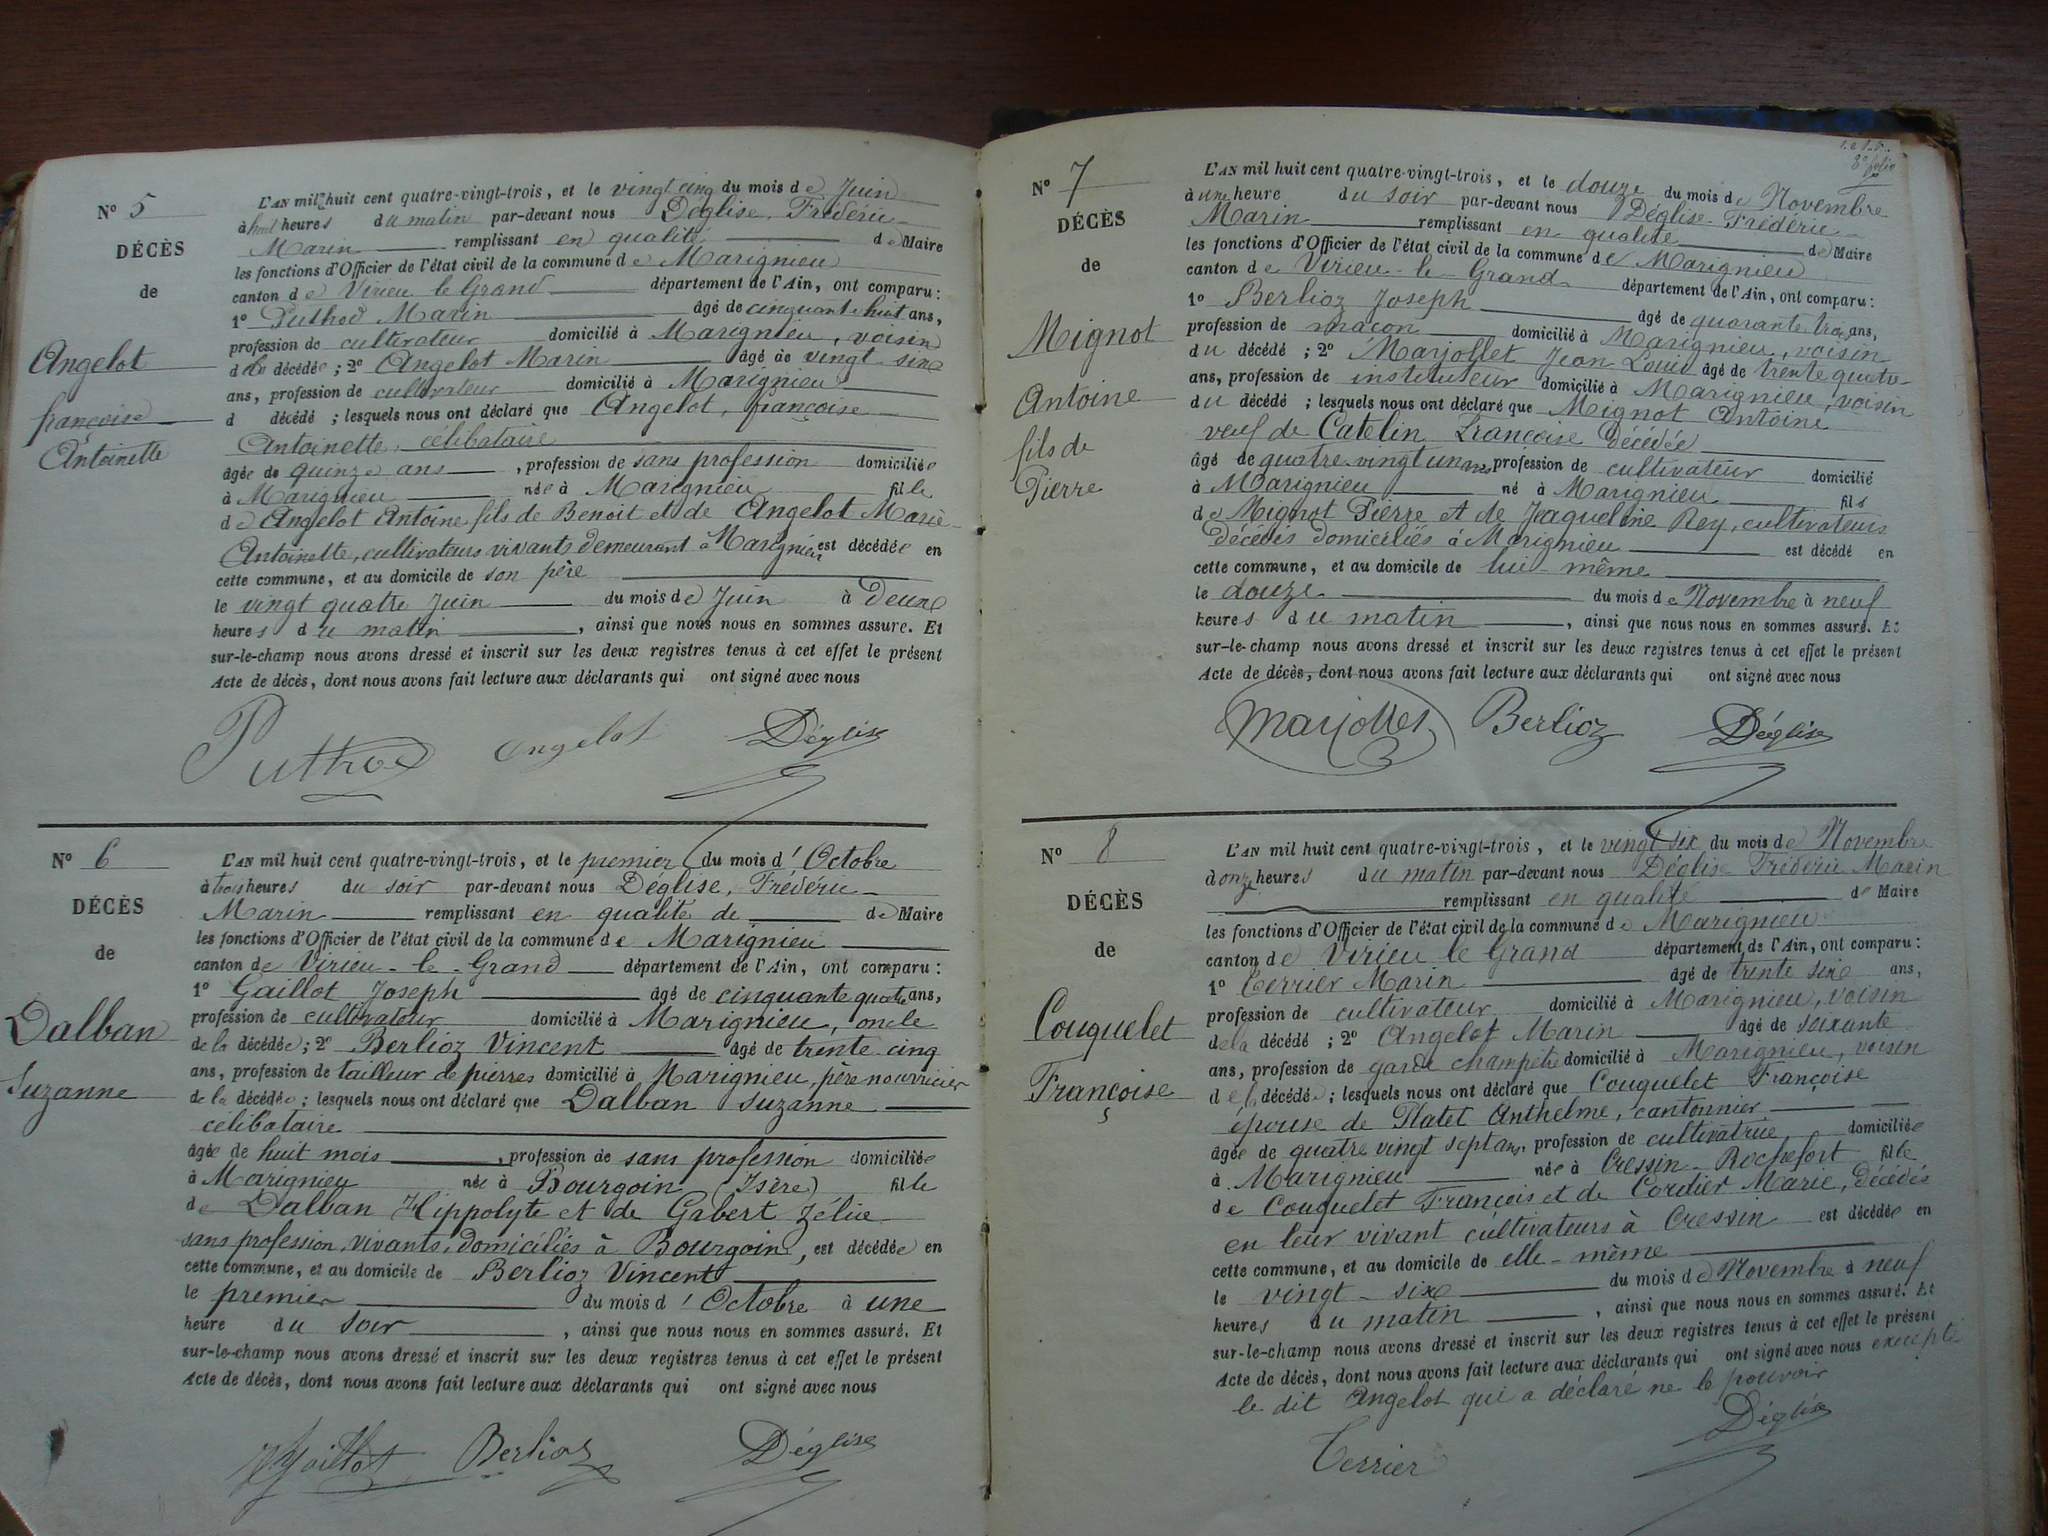 N° 5
DÉCÈS
de
Angelot
françoise
Antoinette
L'AN mil huit cent quatre-vingt-trois, et le vingt cinq du mois de Juin
à huit heures du matin par-devant nous Déglise, Frédéric
Marin remplissant en qualité de Maire
les fonctions d'Officier de l'état civil de la commune de Marignieu
canton de Virieu le Grand département de l'Ain, ont comparu :
1° Puthod Marin âgé de cinquante huit ans,
profession de cultivateur domicilié à Marignieu, voisin
de la décédée ; 2° Angelot Marin âgé de vingt-six
ans, profession de cultivateur domicilié à Marignieu
d décédé ; lesquels nous ont déclaré que Angelot, françoise
Antoinette, célibataire
âgée de quinze ans, profession de sans profession domiciliée
à Marignieu née à Marignieu fille
de Angelot Antoine fils de Benoit et de Angelot Marie-
Antoinette, cultivateurs vivants demeurant à Marignieu est décédée en
cette commune, et au domicile de son père
le vingt quatre Juin du mois de Juin à Deux
heures du matin, ainsi que nous nous en sommes assuré. Et
sur-le-champ nous avons dressé et inscrit sur les deux registres tenus à cet effet le présent
Acte de décès, dont nous avons fait lecture aux déclarants qui ont signé avec nous
Puthod Angelot Déglise
N° 6
DÉCÈS
de
Dalban
Suzanne
L'AN mil huit cent quatre-vingt-trois, et le premier du mois d'Octobre
à trois heures du soir par-devant nous Déglise, Frédéric-
Marin remplissant en qualité de de Maire
les fonctions d'Officier de l'état civil de la commune de Marignieu
canton de Virieu-le-Grand département de l'Ain, ont comparu :
1° Gaillot Joseph âgé de cinquante quatre ans,
profession de cultivateur domicilié à Marignieu, oncle
de la décédée ; 2° Berlioz Vincent âgé de trente-cinq
ans, profession de tailleur de pierres domicilié à Marignieu, père nourricier
de la décédée ; lesquels nous ont déclaré que Dalban Suzanne
célibataire
âgée de huit mois, profession de sans profession domiciliée
à Marignieu née à Bourgoin (Isère) fille
de Dalban Hippolyte et de Gabert Zélie
sans profession, vivants, domiciliés à Bourgoin, est décédée en
cette commune, et au domicile de Berlioz Vincent
le premier du mois d'Octobre à une
heure du soir, ainsi que nous nous en sommes assuré. Et
sur-le-champ nous avons dressé et inscrit sur les deux registres tenus à cet effet le présent
Acte de décès, dont nous avons fait lecture aux déclarants qui ont signé avec nous
Gaillot Berlioz Déglise
8e folio
N° 7
DÉCÈS
de
Mignot
Antoine
fils de
Pierre
L'AN mil huit cent quatre-vingt-trois, et le douze du mois de Novembre
à une heure du soir par-devant nous Déglise-Frédéric-
Marin remplissant en qualité de Maire
les fonctions d'Officier de l'état civil de la commune de Marignieu
canton de Virieu-le-Grand département de l'Ain, ont comparu :
1° Berlioz Joseph âgé de quarante trois ans,
profession de maçon domicilié à Marignieu, voisin
du décédé ; 2° Marjollet Jean Louis âgé de trente quatre-
ans, profession de instituteur domicilié à Marignieu, voisin
du décédé ; lesquels nous ont déclaré que Mignot Antoine
veuf de Catelin Françoise décédée
âgé de quatre-vingt un ans profession de cultivateur domicilié
à Marignieu né à Marignieu fils
de Mignot Pierre et de Jeaqueline Rey, cultivateurs
décédés domiciliés à Marignieu est décédé en
cette commune, et au domicile de lui-même
le douze du mois de Novembre à neuf
heures du matin, ainsi que nous nous en sommes assuré. Et
sur-le-champ nous avons dressé et inscrit sur les deux registres tenus à cet effet le présent
Acte de décès, dont nous avons fait lecture aux déclarants qui ont signé avec nous
Marjollet Berlioz Déglise
N° 8
DÉCÈS
de
Couquelet
Françoise
L'AN mil huit cent quatre-vingt-trois, et le vingt six du mois de Novembre
à onze heures du matin par-devant nous Déglise Frédéric Marin
remplissant en qualité de Maire
les fonctions d'Officier de l'état civil de la commune de Marignieu
canton de Virieu le Grand département de l'Ain, ont comparu :
1° Terrier Marin âgé de trente six ans,
profession de cultivateur domicilié à Marignieu, voisin
de la décédé ; 2° Angelot Marin âgé de soixante
ans, profession de garde champêtre domicilié à Marignieu, voisin
de la décédée ; lesquels nous ont déclaré que Couquelet Françoise
épouse de Platet Anthelme, cantonnier
âgée de quatre vingt sept ans, profession de cultivatrice domiciliée
à Marignieu née à Cressin-Rochefort fille
de Couquelet François et de Cordier Marie, décédés
en leur vivant cultivateurs à Cressin est décédée en
cette commune, et au domicile de elle-même
le vingt-six du mois de Novembre à neuf
heures du matin, ainsi que nous nous en sommes assuré. Et
sur-le-champ nous avons dressé et inscrit sur les deux registres tenus à cet effet le présent
Acte de décès, dont nous avons fait lecture aux déclarants qui ont signé avec nous excepté
le dit Angelot qui a déclaré ne le pouvoir
Terrier Déglise